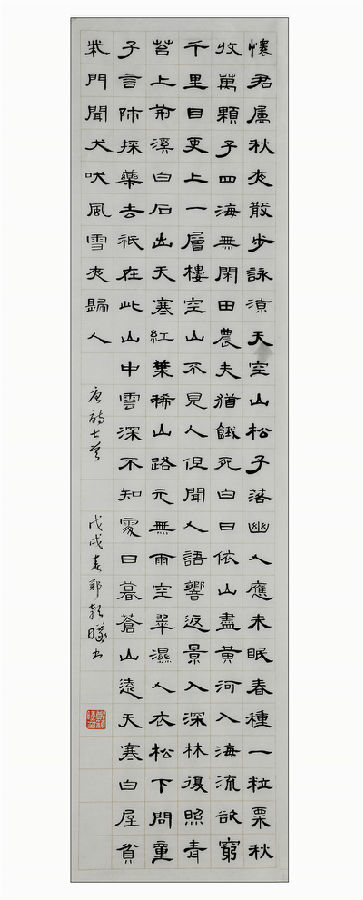 懷君屬秋夜散步詠涼天空山松子落幽人應未眠春種一粒粟秋
收萬顆子四海無閑田農夫猶餓死白日依山盡黃河入海流欲窮
千里目更上一層樓空山不見人但聞人語響返景入深林復照青
苔上荊溪白石出天寒紅葉稀山路元無雨空翠濕人衣松下問童
子言師採藥去祇在此山中雲深不知處日暮蒼山遠天寒白屋貧
柴門聞犬吠風雪夜歸人 唐詩七首 戊戌春